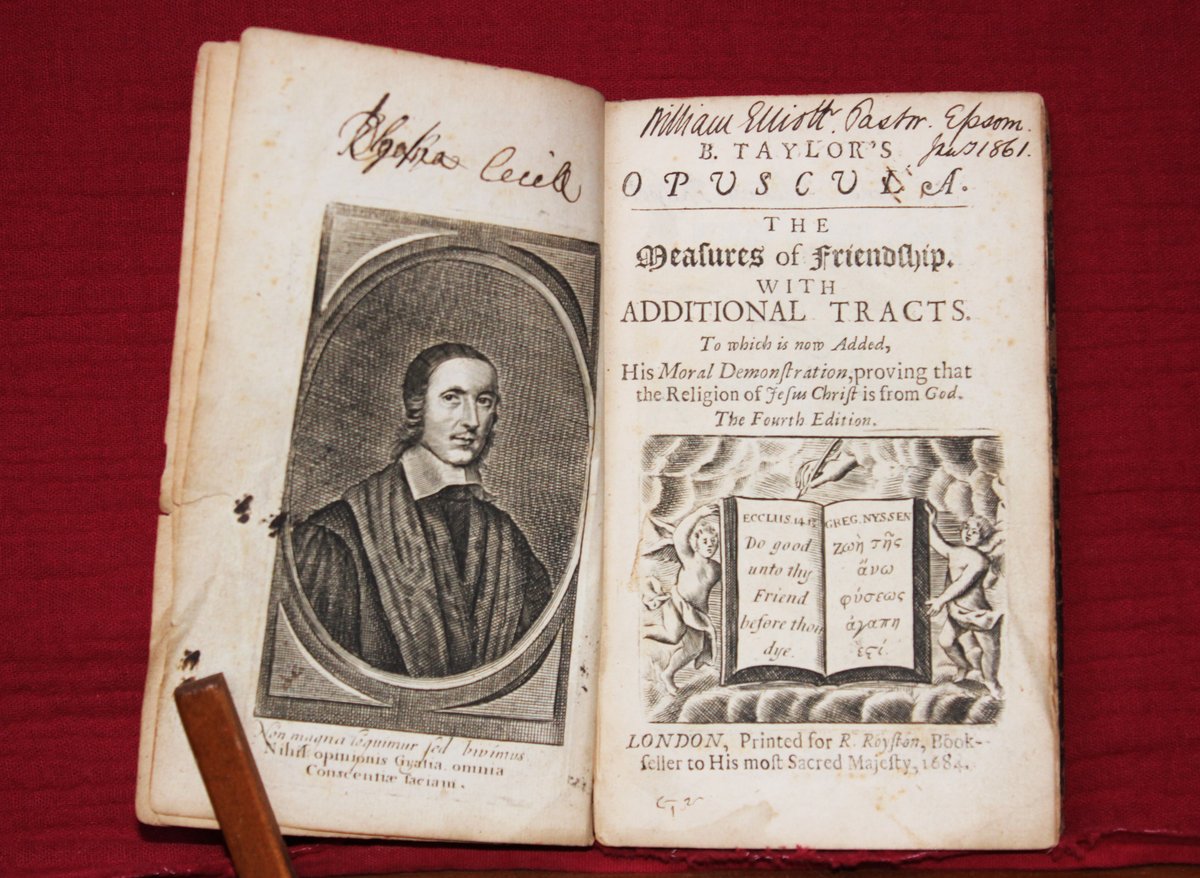 Cecill
Non magna loquimur sed vivimus.
Nihil opinionis Gratia, omnia
Conscientiæ faciam.
William Elliott. Pastor. Epsom.
Jany 1861.
B. TAYLOR'S
OPUSCULA.
THE
Meaſures of Friendſhip.
WITH
ADDITIONAL TRACTS.
To which is now Added,
His Moral Demonſtration, proving that
the Religion of Jeſus Chriſt is from God.
The Fourth Edition.
ECCLUS. 14.13
Do good
unto thy
Friend
before thou
dye.
GREG. NYSSEN
ζωὴ τῆς
ἄνω
φύσεως
ἀγαπη
ἐϛί.
LONDON, Printed for R. Royſton, Book-
ſeller to His moſt Sacred Majeſty, 1684.